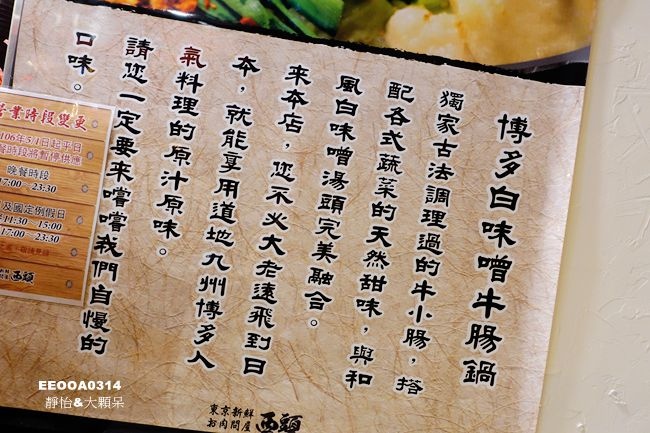 博多白味噌牛腸鍋
獨家古法調理過的牛小腸，搭
配各式蔬菜的天然甜味，與和
風白味噌湯頭完美融合。
來本店，您不必大老遠飛到日
本，就能享用道地九州博多人
氣料理的原汁原味。
請您一定要來嚐嚐我們自慢的
口味。
營業時段變更
106年5/1日起平日
餐時段將暫停供應
晚餐時段
17:00~23:30
及國定例假日
11:30~15:00
17:00~23:30
西頭
EEOOA0314
靜怡&大顆呆
東京新鮮
お肉問屋
西頭